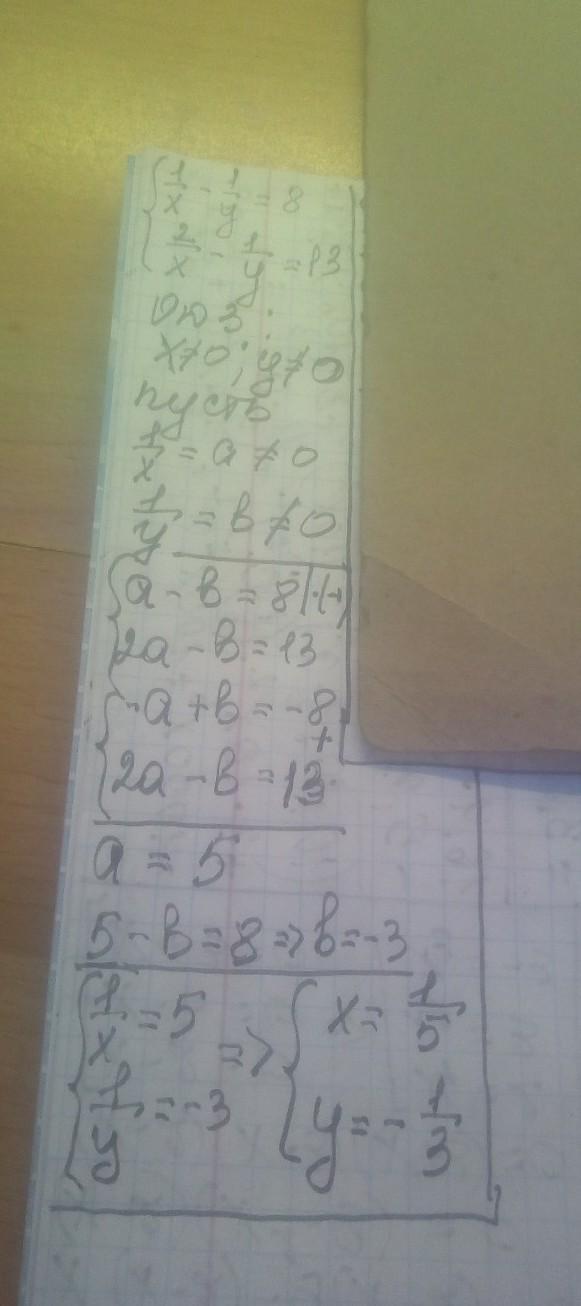 {1/x - 1/y = 8
{2/x - 1/y = 13
ОДЗ:
x≠0; y≠0
пусть
1/x = a ≠ 0
1/y = b ≠ 0
{a - b = 8 |·(-1)
{2a - b = 13
{-a + b = -8
+
{2a - b = 13
a = 5
5 - b = 8 => b = -3
{1/x = 5 => {x = 1/5
{1/y = -3 {y = -1/3